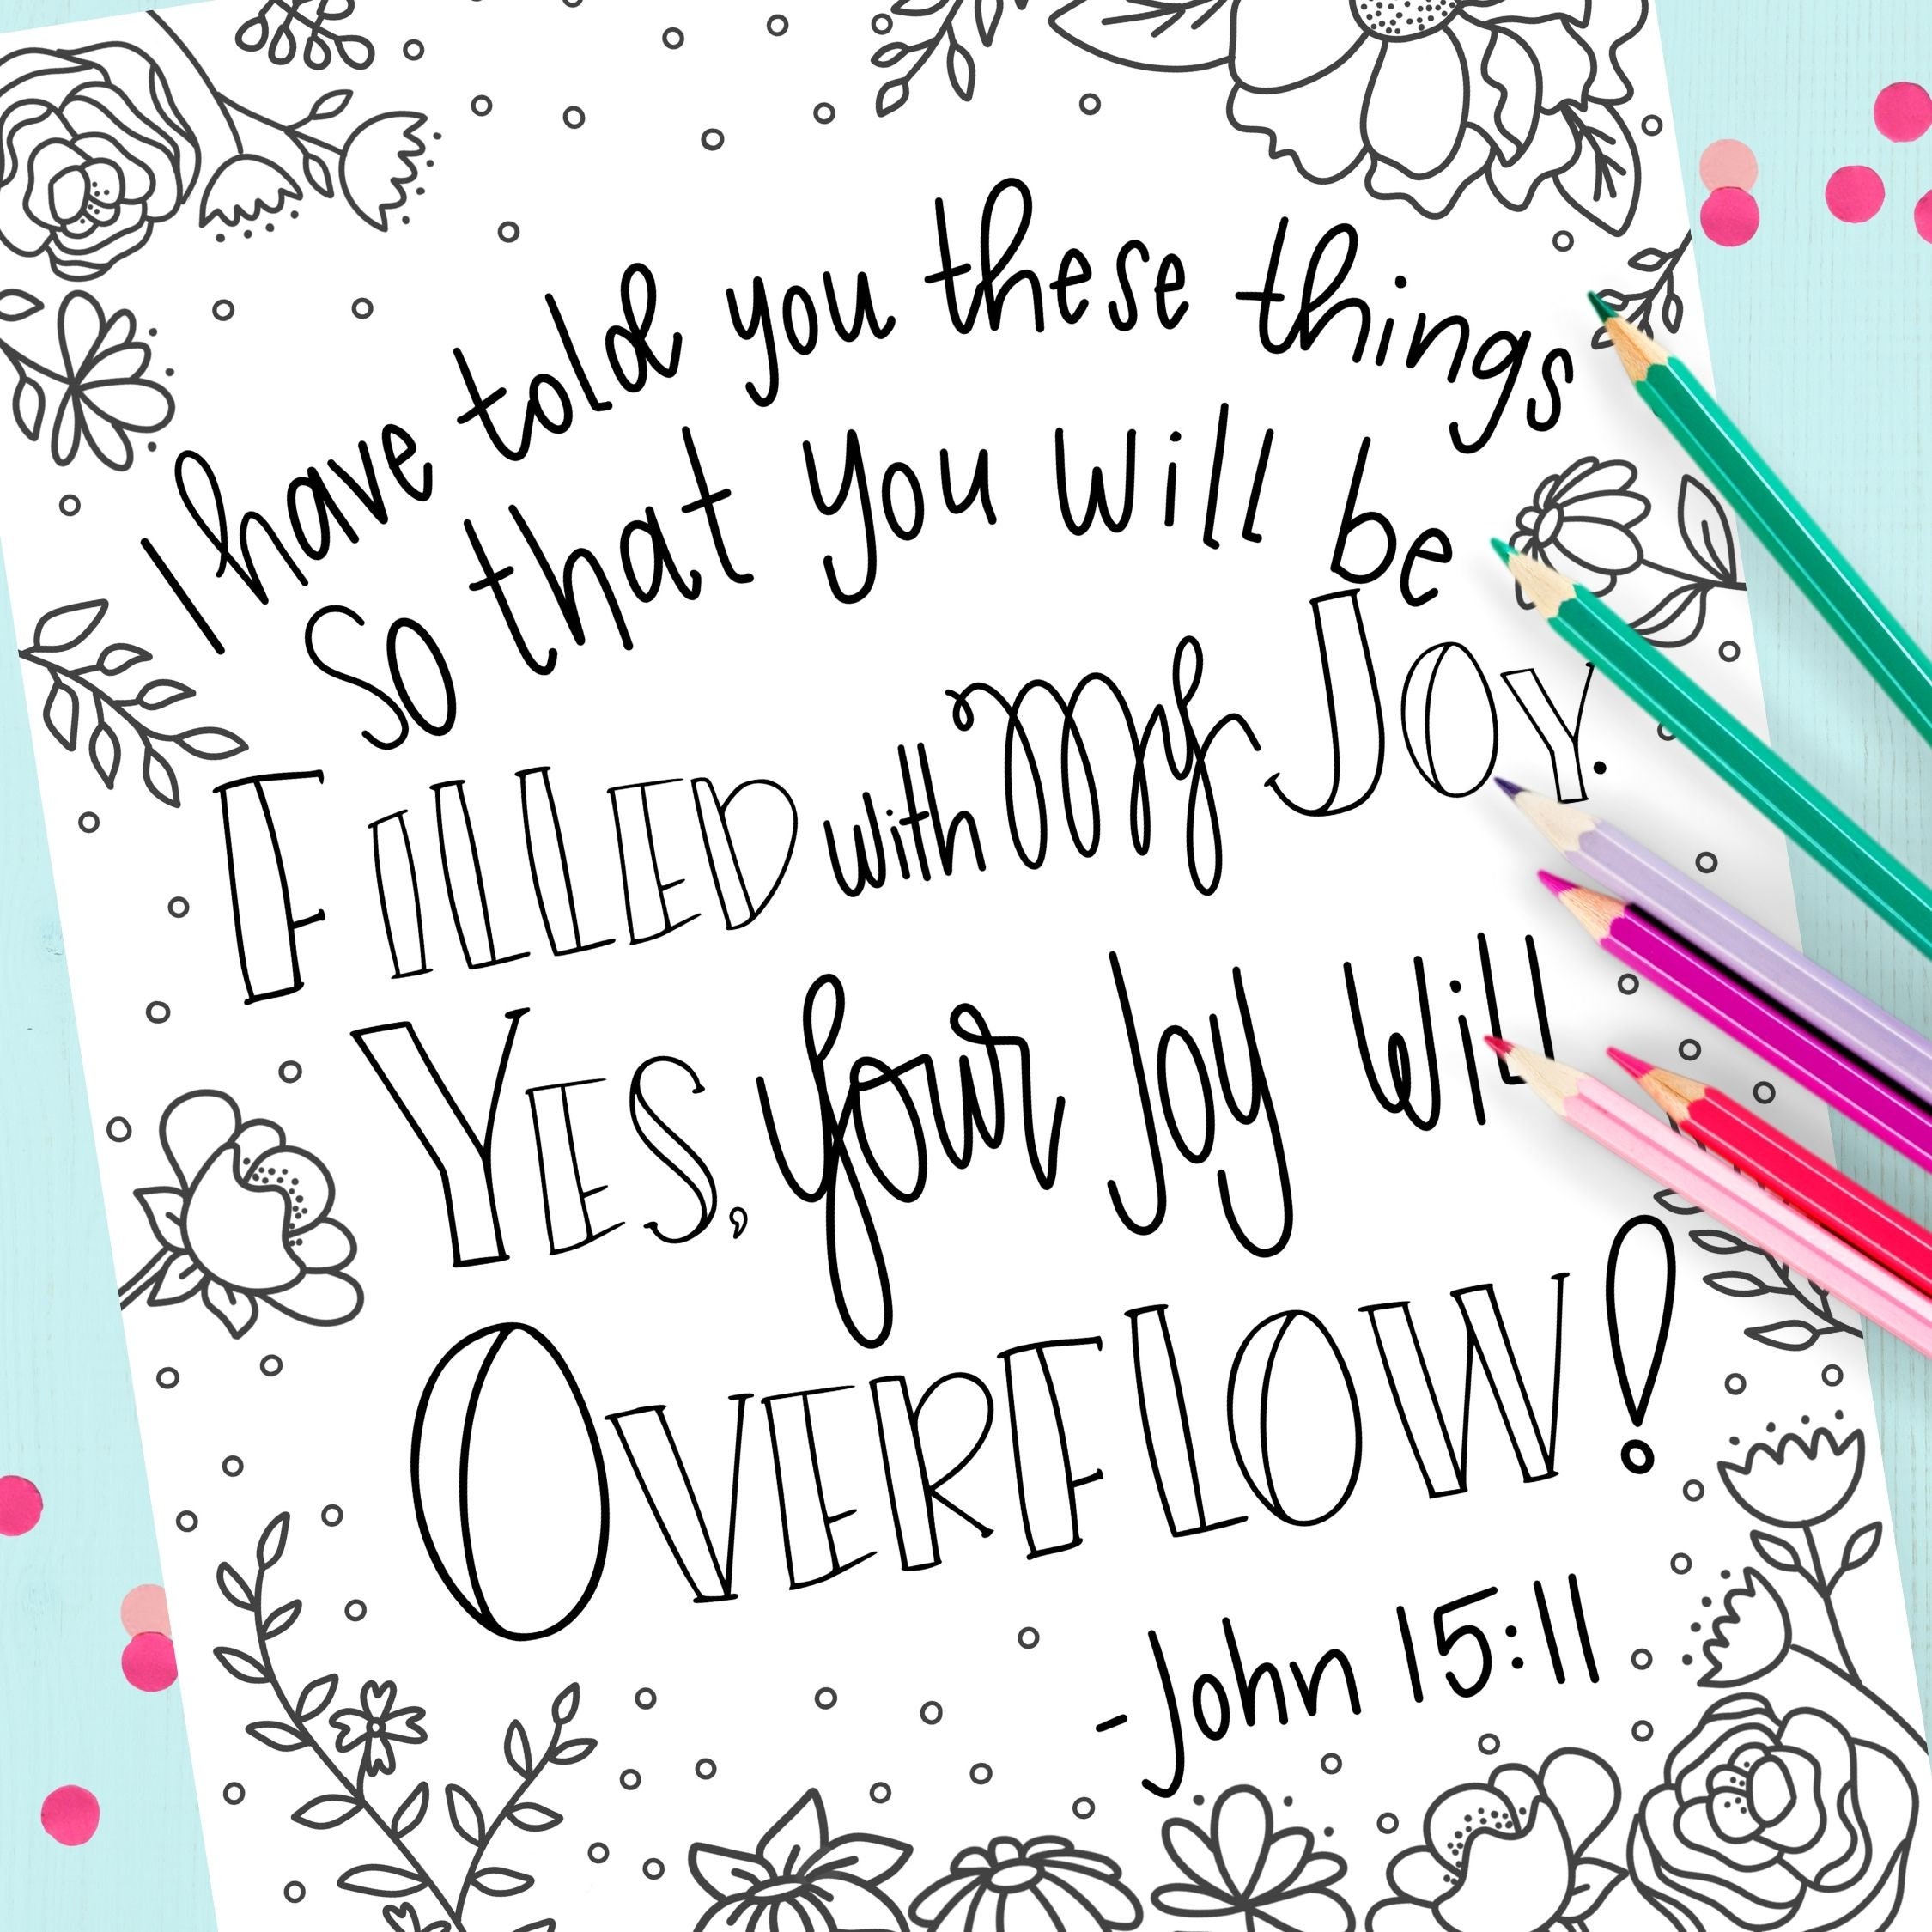 I have told you these things
So that you will be
FILLED with my JOY.
YES, your joy will
OVERFLOW!
-John 15:11